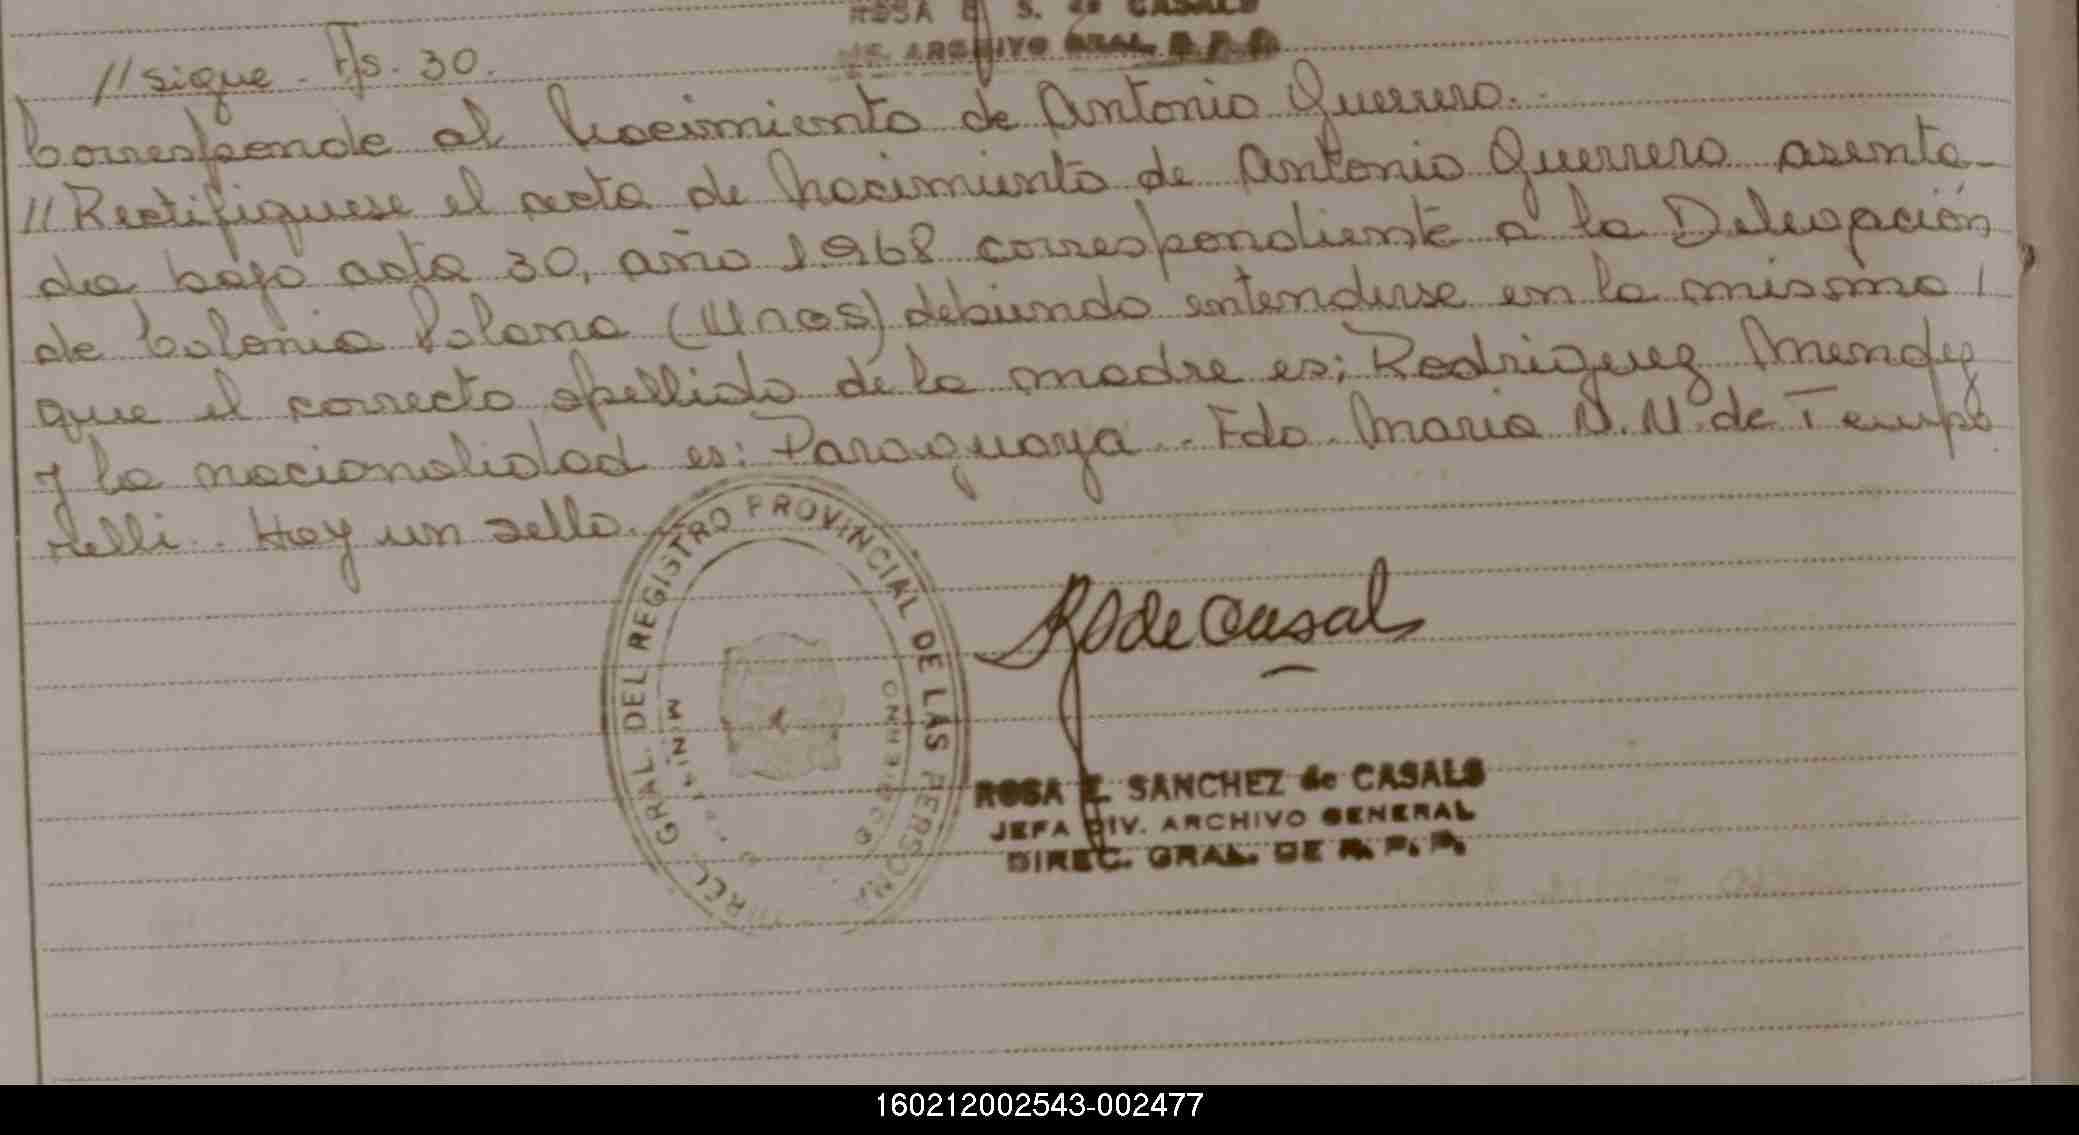 ROSA E S. de CASALS
ARCHIVO GRAL. R.P.P.
//sigue. Fs. 30.
Corresponde al nacimiento de Antonio Guerrero.
//Rectifiquese el acta de nacimiento de Antonio Guerrero asenta-
da bajo acta 30, año 1968 correspondiente a la Delegación
de Colonia Polana (Unas) debiendo entenderse en la misma /
que el correcto apellido de la madre es; Rodriguez Mendez
y la nacionalidad es: Paraguaya. Fdo. Maria N.N. de Tempo
relli. Hay un sello.
DIREC. GRAL. DEL REGISTRO PROVINCIAL DE LAS PERSONA
MINIS
GOBIERNO
RS de Casal
ROSA E. SANCHEZ de CASALS
JEFA DIV. ARCHIVO GENERAL
DIREC. GRAL. DE R. P. P.
160212002543-002477